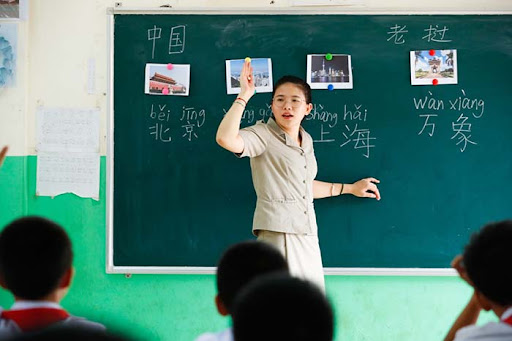 中国
老挝
běi jīng
北京
shàng hǎi
上海
wàn xiàng
万象